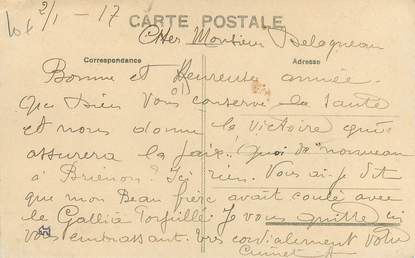 2/1 - 17
CARTE POSTALE
Cher Monsieur Delagneau
Correspondance
Adresse
Bonne et Heureuse année.
Que Dieu vous conserve la Santé
et nous donne la victoire qui
assurera la paix. Quoi de nouveau
à Brienon? Ici rien. Vous ai-je dit
que mon Beau frère avait coulé avec
le Gallia Torpillé. Je vous quitte en
vous embrassant très cordialement votre